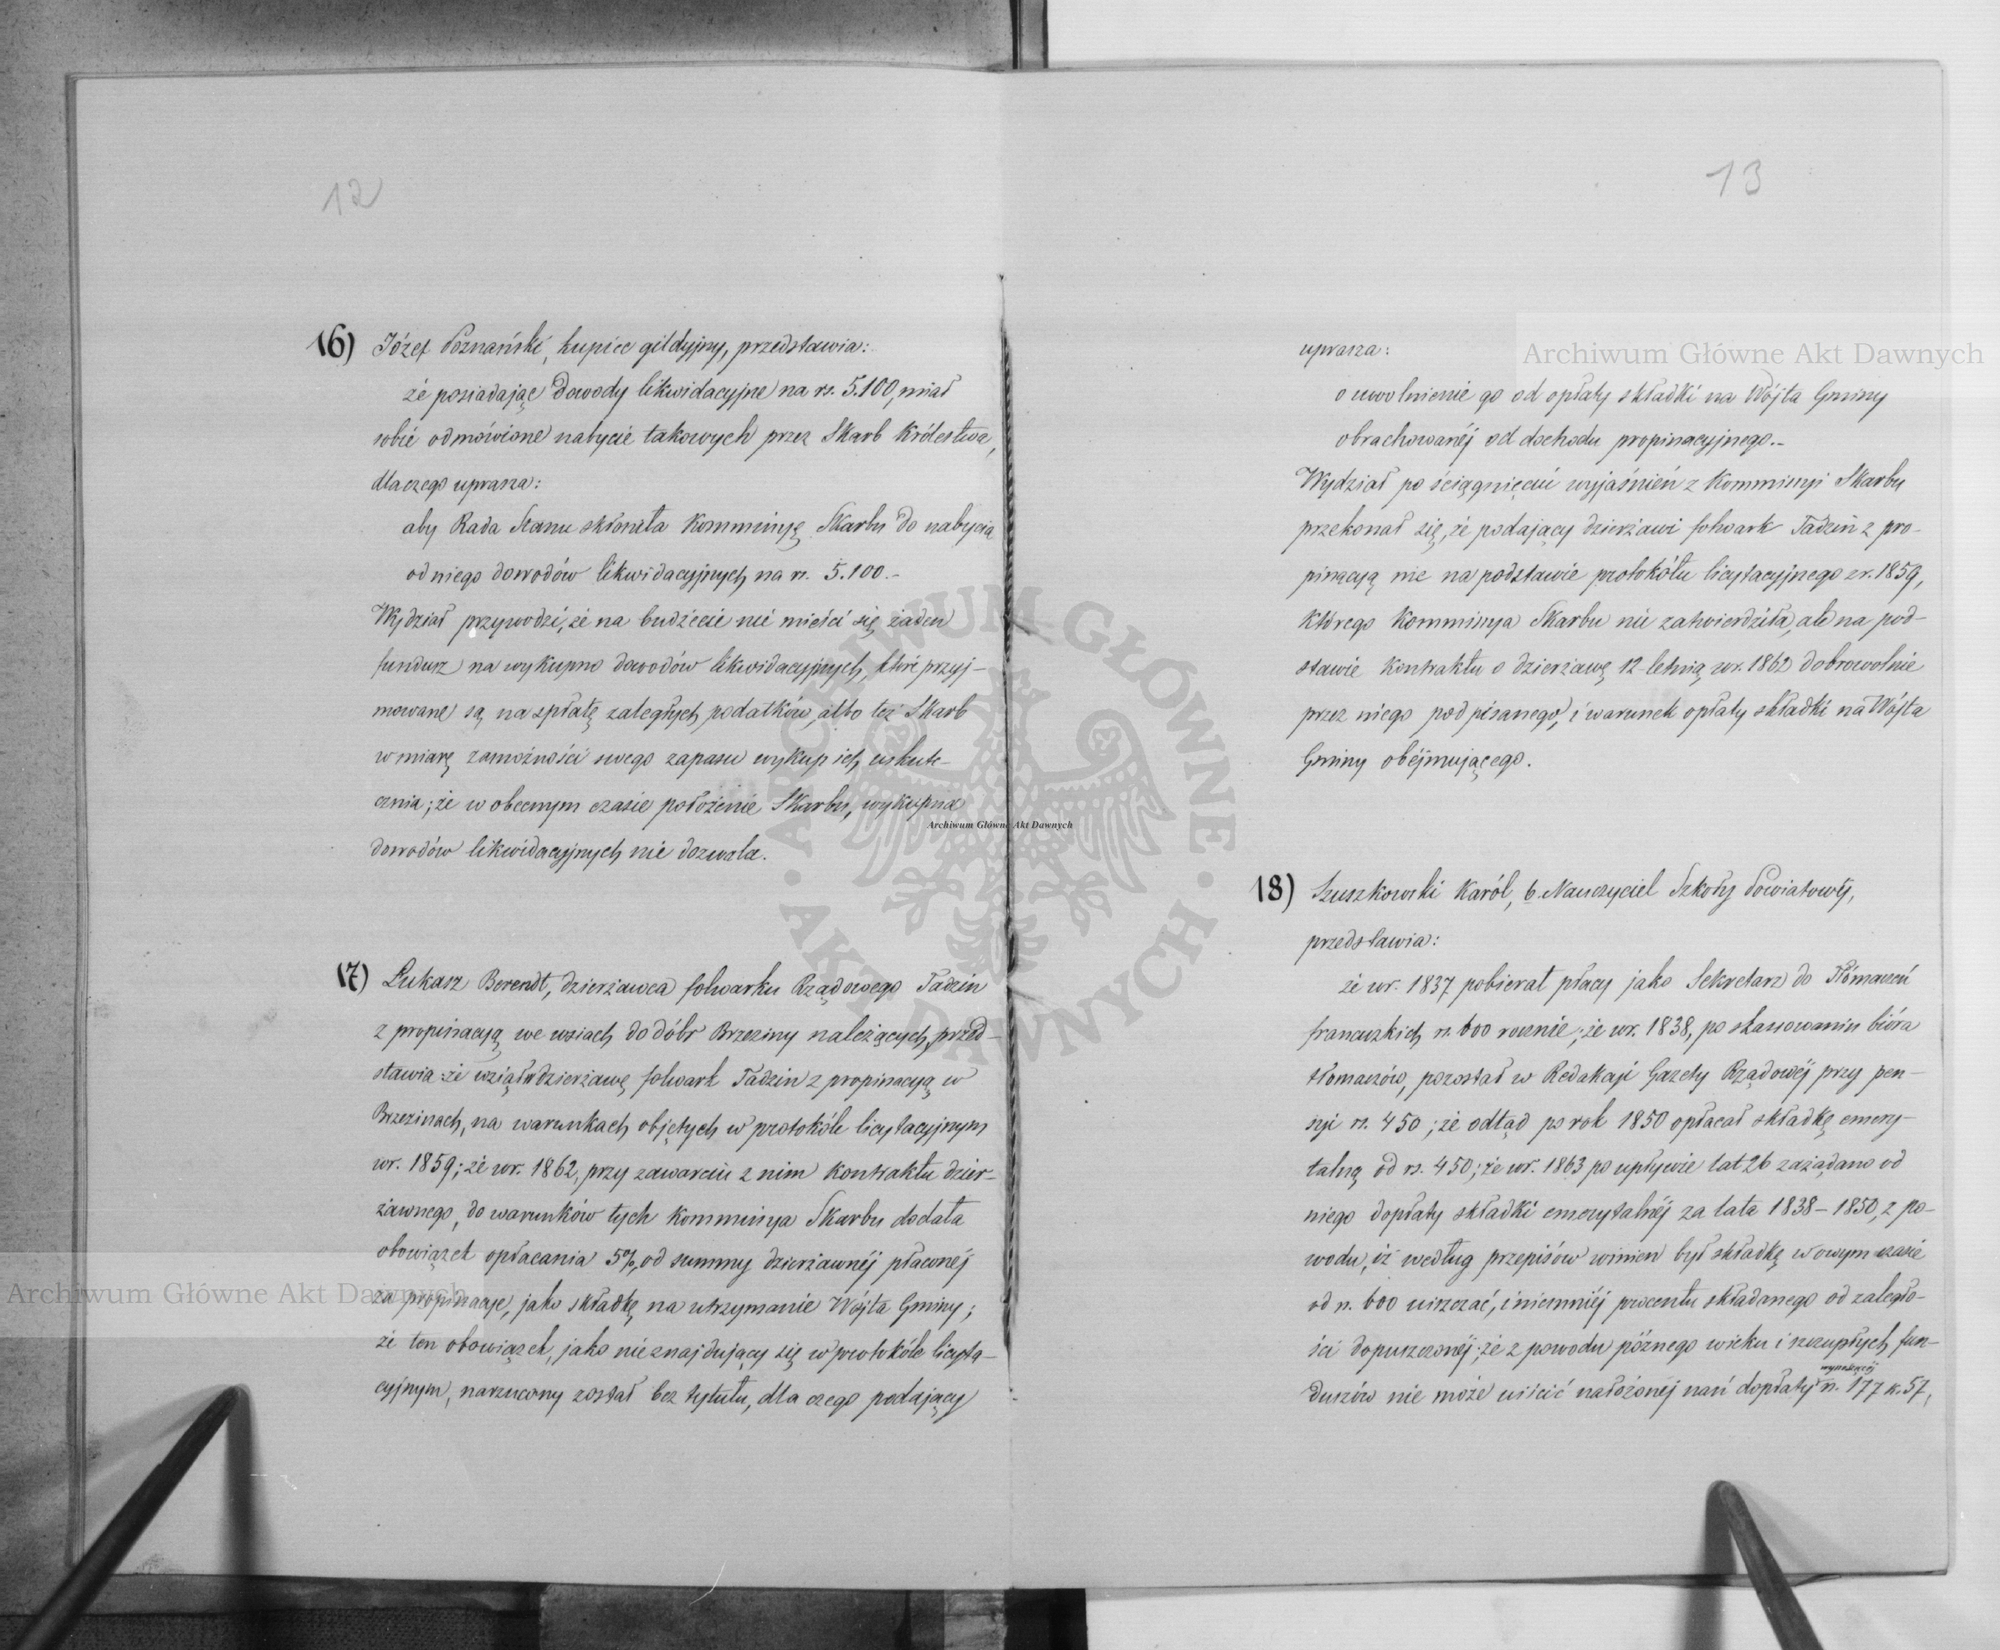 12
16) Józef Poznański, kupiec gildyjny, przedstawia:
że posiadając dowody likwidacyjne na rs. 5.100, miał
sobie odmówione nabycie takowych przez Skarb Królestwa,
dlaczego uprasza:
aby Rada Stanu skłoniła Kommissyę Skarbu do nabycia
od niego dowodów likwidacyjnych na rs. 5.100.-
Wydział przywodzi, że na budżecie nie mieści się żaden
fundusz na wykupno dowodów likwidacyjnych, które przyj-
mowane są na spłatę zaległych podatków, albo też Skarb
w miarę zamożności swego zapasu wykup ich uskute-
cznia; że w obecnym czasie położenie Skarbu, wykupna
dowodów likwidacyjnych nie dozwala.
17) Łukasz Berendt, dzierżawca folwarku Rządowego Tadzin
z propinacyą we wsiach do dóbr Brzeziny należących, przed-
stawia: że wziął w dzierżawę folwark Tadzin z propinacyą w
Brzezinach, na warunkach objętych w protokóle licytacyjnym
w r. 1859; że w r. 1862, przy zawarciu z nim kontraktu dzier-
żawnego, do warunków tych Kommissya Skarbu dodała
obowiązek opłacania 5% od summy dzierżawnéj płaconéj
za propinacye, jako składkę na utrzymanie Wójta Gminy;
że ten obowiązek, jako nieznajdujący się w protokóle licyta-
cyjnym, narzucony został bez tytułu, dla czego podający
13
uprasza:
o uwolnienie go od opłaty składki na Wójta Gminy
obrachowanéj od dochodu propinacyjnego.-
Wydział po ściągnięciu wyjaśnień z Kommissyi Skarbu
przekonał się, że podający dzierżawi folwark Tadzin z pro-
pinacyą nie na podstawie protokółu licytacyjnego z r. 1859,
którego Kommissya Skarbu nie zatwierdziła, ale na pod-
stawie kontraktu o dzierżawę 12-letnią w r. 1862 dobrowolnie
przez niego podpisanego, i warunek opłaty składki na Wójta
Gminy obéjmującego.
18) Szuszkowski Karól, b. Nauczyciel Szkoły Powiatowéj,
przedstawia:
że w r. 1837 pobierał płacy jako Sekretarz do Tłómaczeń
francuzkich rs. 600 rocznie; że w r. 1838, po skasowaniu bióra
tłomaczów, pozostał w Redakcji Gazety Rządowéj przy pen-
syi rs. 450; że odtąd po rok 1850 opłacał składkę emery-
talną od rs. 450; że w r. 1863 po upływie lat 26 zażądano od
niego dopłaty składki emerytalnéj za lata 1838-1850, z po-
wodu, iż według przepisów winien był składkę w owym czasie
od rs. 600 uiszczać, i niemniéj procentu składanego od zaległo-
ści dopuszczonéj; że z powodu późnego wieku i szczupłych fun-
duszów nie może uiścić nałożonéj nań dopłaty wynoszącéj rs. 177 k. 57,
Archiwum Główne Akt Dawnych
Archiwum Główne Akt Dawnych
Archiwum Główne Akt Dawnych
ARCHIWUM GŁÓWNE AKT DAWNYCH